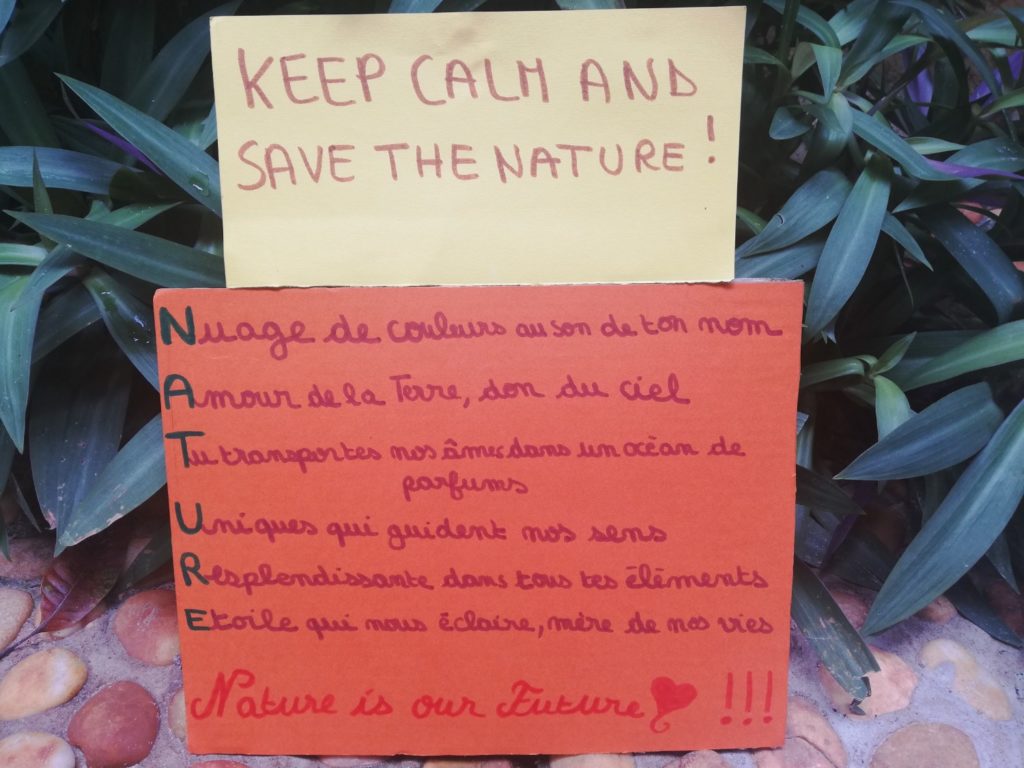 KEEP CALM AND
SAVE THE NATURE !
Nuage de couleurs au son de ton nom
Amour de la Terre, don du ciel
Tu transportes nos âmes dans un océan de
parfums
Uniques qui guident nos sens
Resplendissante dans tous tes éléments
Etoile qui nous éclaire, mère de nos vies
Nature is our Future !!!